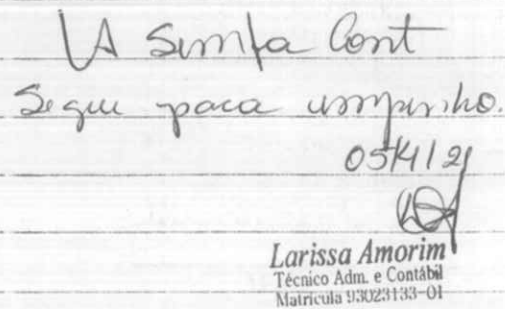 A Simfa Cont
Segue para empenho.
05/4/21
Larissa Amorim
Técnico Adm. e Contábil
Matrícula 93023133-01